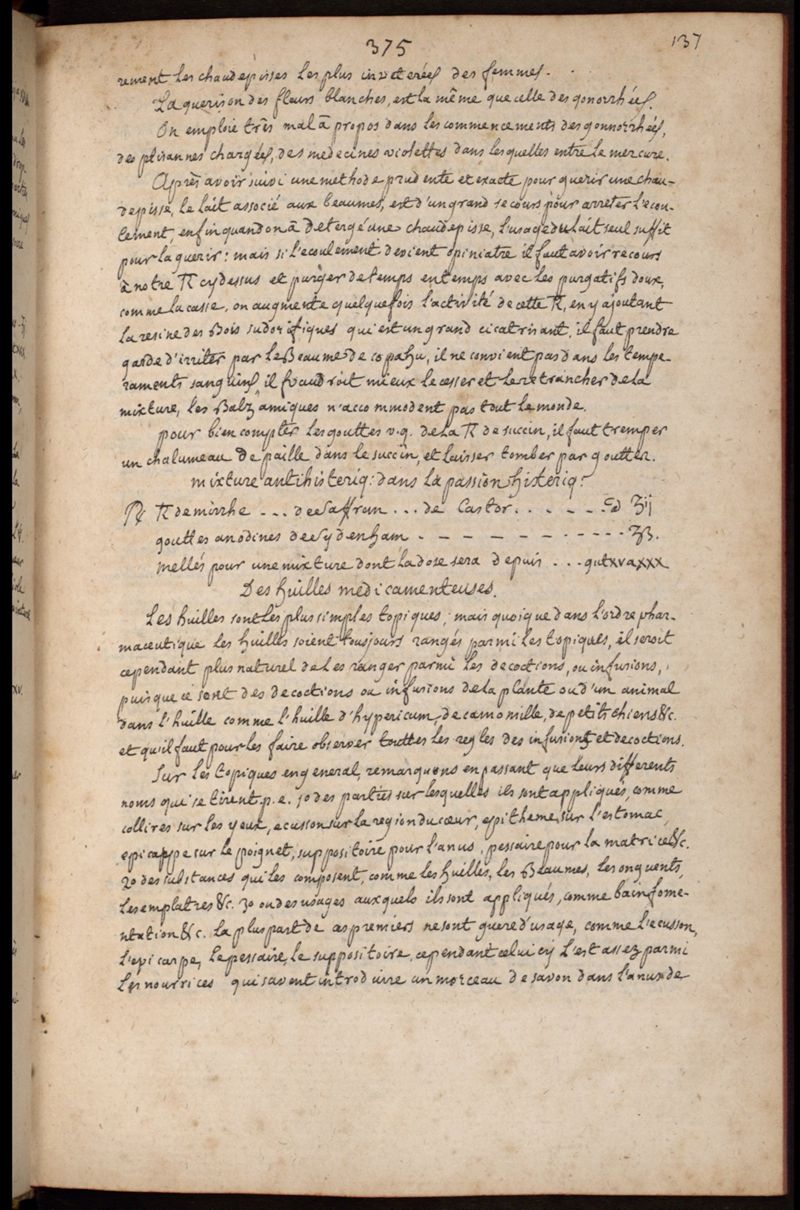 375
137
rement les chaudepisses les plus inveterées des femmes.
La guerison des fleurs blanches, est la même que celle des gonorrhées.
On emploie très mal à propos dans les commencements des gonnorrhées,
des ptisannes chargées, des medecines violettes dans lesquelles entre le mercure.
Après avoir suivi une methode prudente et exacte pour guerir une chau-
depisse, le lait associé aux beaumes, est d'un grand secours pour arreter l'ecou-
lement, enfin quand on a detergé une chaudepisse, l'usage du lait seul suffit
pour la guerir: mais si l'ecoulement devient opiniatre il faut avoir recours
à notre R cydessus et purger de temps en temps avec les purgatifs doux,
comme la casse, on augmente quelquefois l'activité de cette R, en y ajoutant
la resine des Bois sudorifiques qui est un grand cicatrisant, il faut prendre
garde d'irriter par le Beaume de copahu, il ne convient pas dans les tempe-
raments sanguins, il faudroit mieux le cesser et le retrancher de la
mixture, les Balzamiques n'accommodent pas tout le monde.
pour bien compter les gouttes v.g. de la R de succin, il faut tremper
un chalumeau de paille dans le succin, et laisser tomber par goutter.
mixture antihisteriq: dans la passion histeriq:
R R de mirrhe - - . de Saffran . . . de Castor . . - . . - a ʒij
gouttes anodines de Sydenham . - - - - - - . . . . . ʒß.
mellés pour une mixture dont la dose sera depuis . . . gutt xv a xxx
Des huilles medicamenteuses.
Les huilles sont les plus simples topiques; mais quoique dans l'ordre phar-
maceutique les huilles soient tousjours rangés parmi les topiques, il seroit
cependant plus naturel de les ranger parmi les decoctions, ou infusions,
puisque ce sont des decoctions ou infusions de la plante ou d'un animal
dans l'huille comme l'huille d'hypericum, de camomille, de petits chiens &c.
et qu'il faut pour les faire observer touttes les regles des infusions et decoctions.
Sur les topiques en general, remarquons en passant que leurs differents
noms qui se tirent p.e. 1o des parties sur lesquelles ils sont appliqués, comme
collires sur les yeux, ecusson sur la region du cœur, epitheme sur l'estomac,
epicarpe sur le poignet, suppositoire pour l'anus, pessaire pour la matrice &c.
2o des substances qui les composent, comme les huilles, les Beaumes, les onguents,
les emplatres &c. 3o ou des usages auxquels ils sont appliqués, comme bain fome-
ntation &c. la pluspart de as premiers ne sont guere d'usage, comme l'ecusson,
l'epicarpe, le pessaire, le suppositoire, cependant celui cy l'est assez parmi
les nourrices qui savent introduire un morceau de savon dans l'anus de